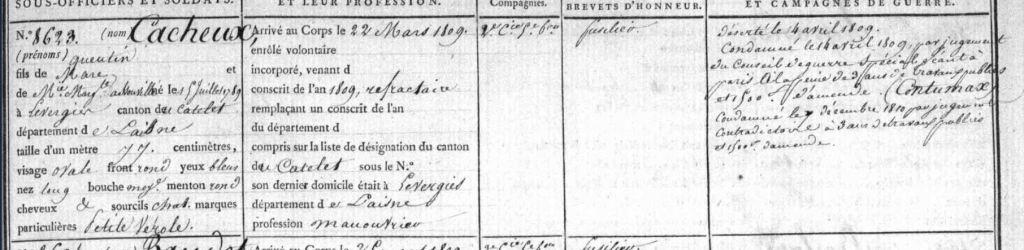 SOUS-OFFICIERS ET SOLDATS.
N.º 8623. (nom) Cacheux,
(prénoms) quentin
fils de Marc et
de né le 15 Juillet 89
à Levergier canton de Catelet
département de Laisne
taille d'un mètre 77 centimètres,
visage ovale front rond yeux bleus
nez long bouche moy. menton rond
cheveux & sourcils chat. marques
particulières Petite Vérole.
ET LEUR PROFESSION.
Arrivé au Corps le 22 Mars 1809.
enrôlé volontaire
incorporé, venant d
conscrit de l'an 1809, refractaire
remplaçant un conscrit de l'an
du département d
compris sur la liste de désignation du canton
du Catelet sous le N.º
son dernier domicile était à Levergies
département de L'aisne
profession manouvrier
Compagnies.
BREVETS D'HONNEUR.
fusilier.
ET CAMPAGNES DE GUERRE.
Déserté le 4 avril 1809.
Condamné le 14 avril 1809, par jugement
du Conseil de guerre Spécial séant à
paris à la peine de ans de travaux publics
et 1500.ᶠ d'amende. (Contumax)
Condamné le 7 décembre 1810 par jugement
Contradictoire à 3 ans de travaux publics
et 1500.ᶠ d'amende.
Arrivé au Corps le 1809.
fusilier